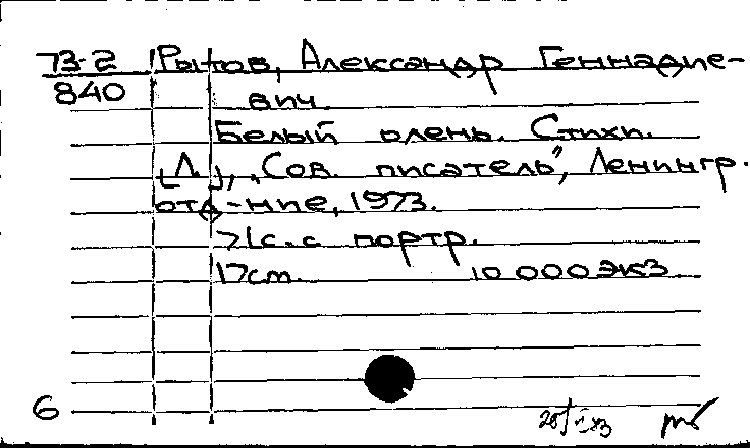 73-2 Рытов, Александр Геннадие-
840 вич.
Белый олень. Стихи.
[Л.], „Сов. писатель", Ленингр.
отд-ние, 1973.
71с. с портр.
17см. 10 000 экз
6